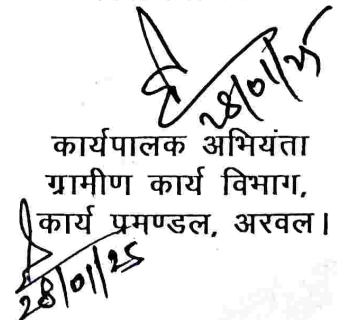 28/01/25
कार्यपालक अभियंता
ग्रामीण कार्य विभाग,
कार्य प्रमण्डल, अरवल।
28/01/25